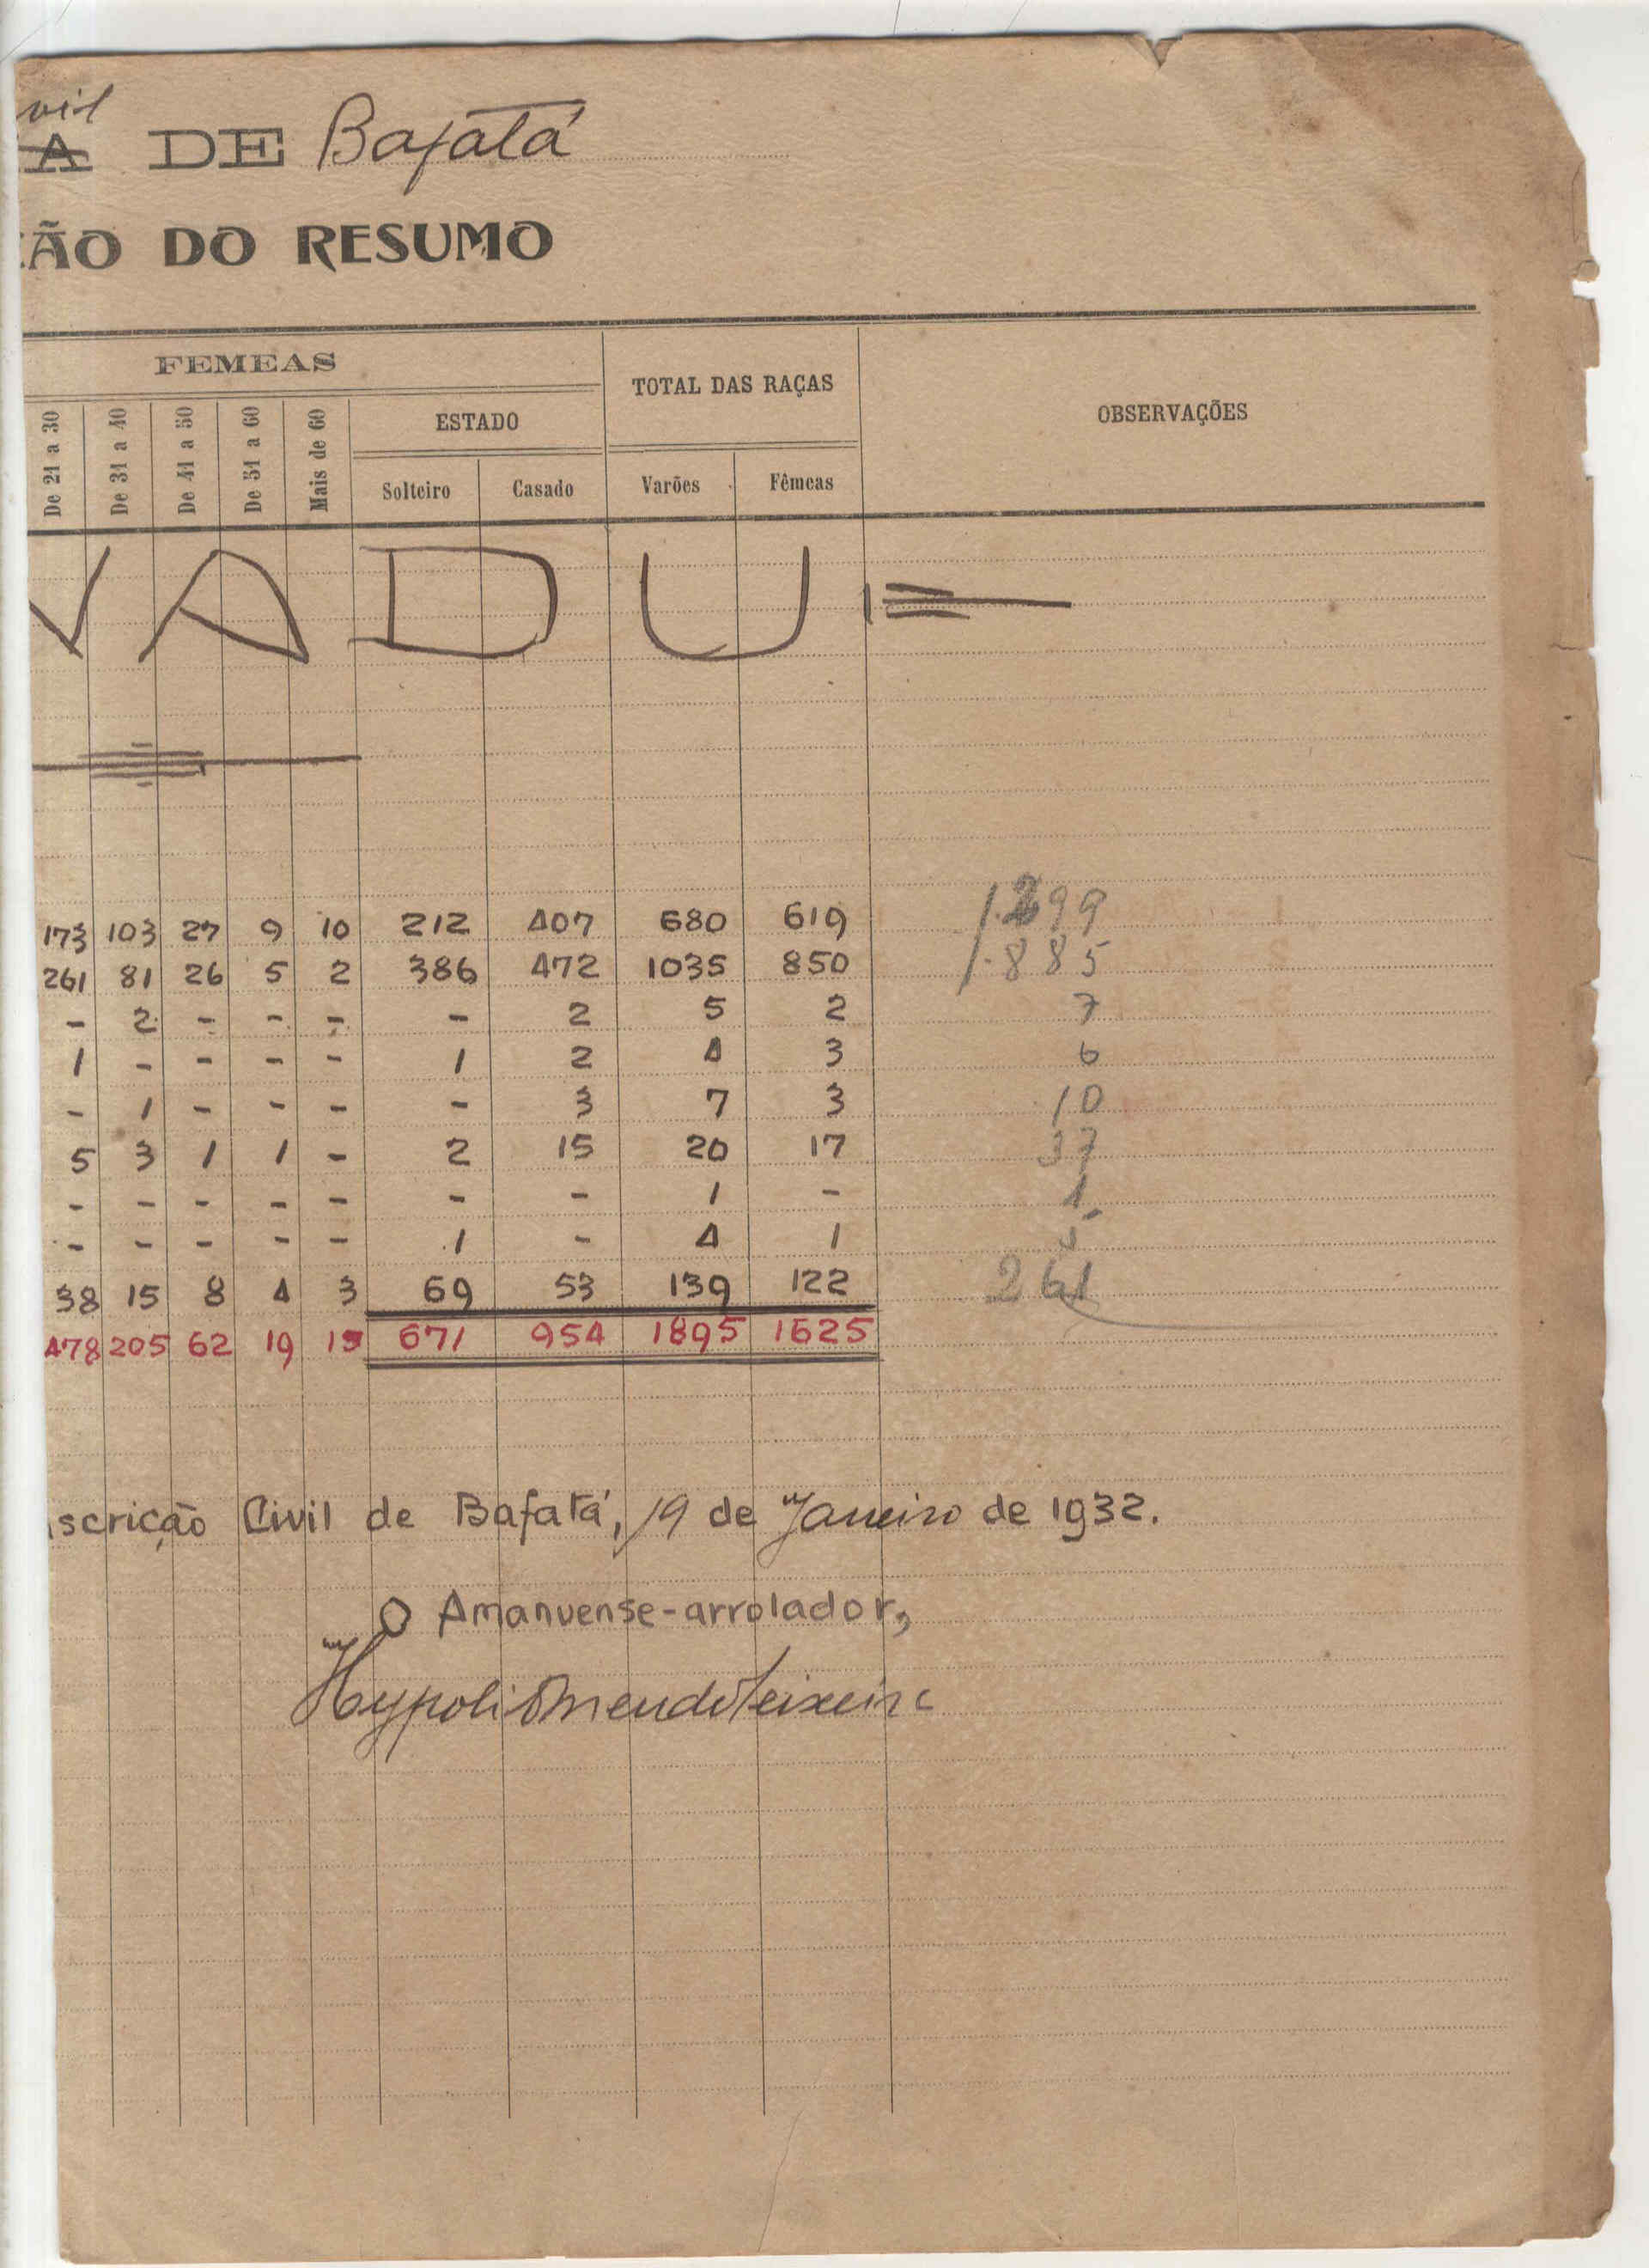 vil
A DE Bafatá
ÇÃO DO RESUMO
FEMEAS
TOTAL DAS RAÇAS
OBSERVAÇÕES
ESTADO
De 21 a 30 De 31 a 40 De 41 a 50 De 51 a 60 Mais de 60 Solteiro Casado Varões Fêmeas
V A D U
173 103 27 9 10 212 407 680 619 1.299
261 81 26 5 2 386 472 1035 850 1.885
- 2 - - - - 2 5 2 7
1 - - - - 1 2 4 3 6
- 1 - - - - 3 7 3 10
5 3 1 1 - 2 15 20 17 37
- - - - - - - 1 - 1
- - - - - 1 - 4 1 5
38 15 8 4 3 69 53 139 122 261
478 205 62 19 15 671 954 1895 1625
scrição Civil de Bafatá, 19 de Janeiro de 1932.
O Amanuense-arrolador,
Hypolito Mendes Teixeira